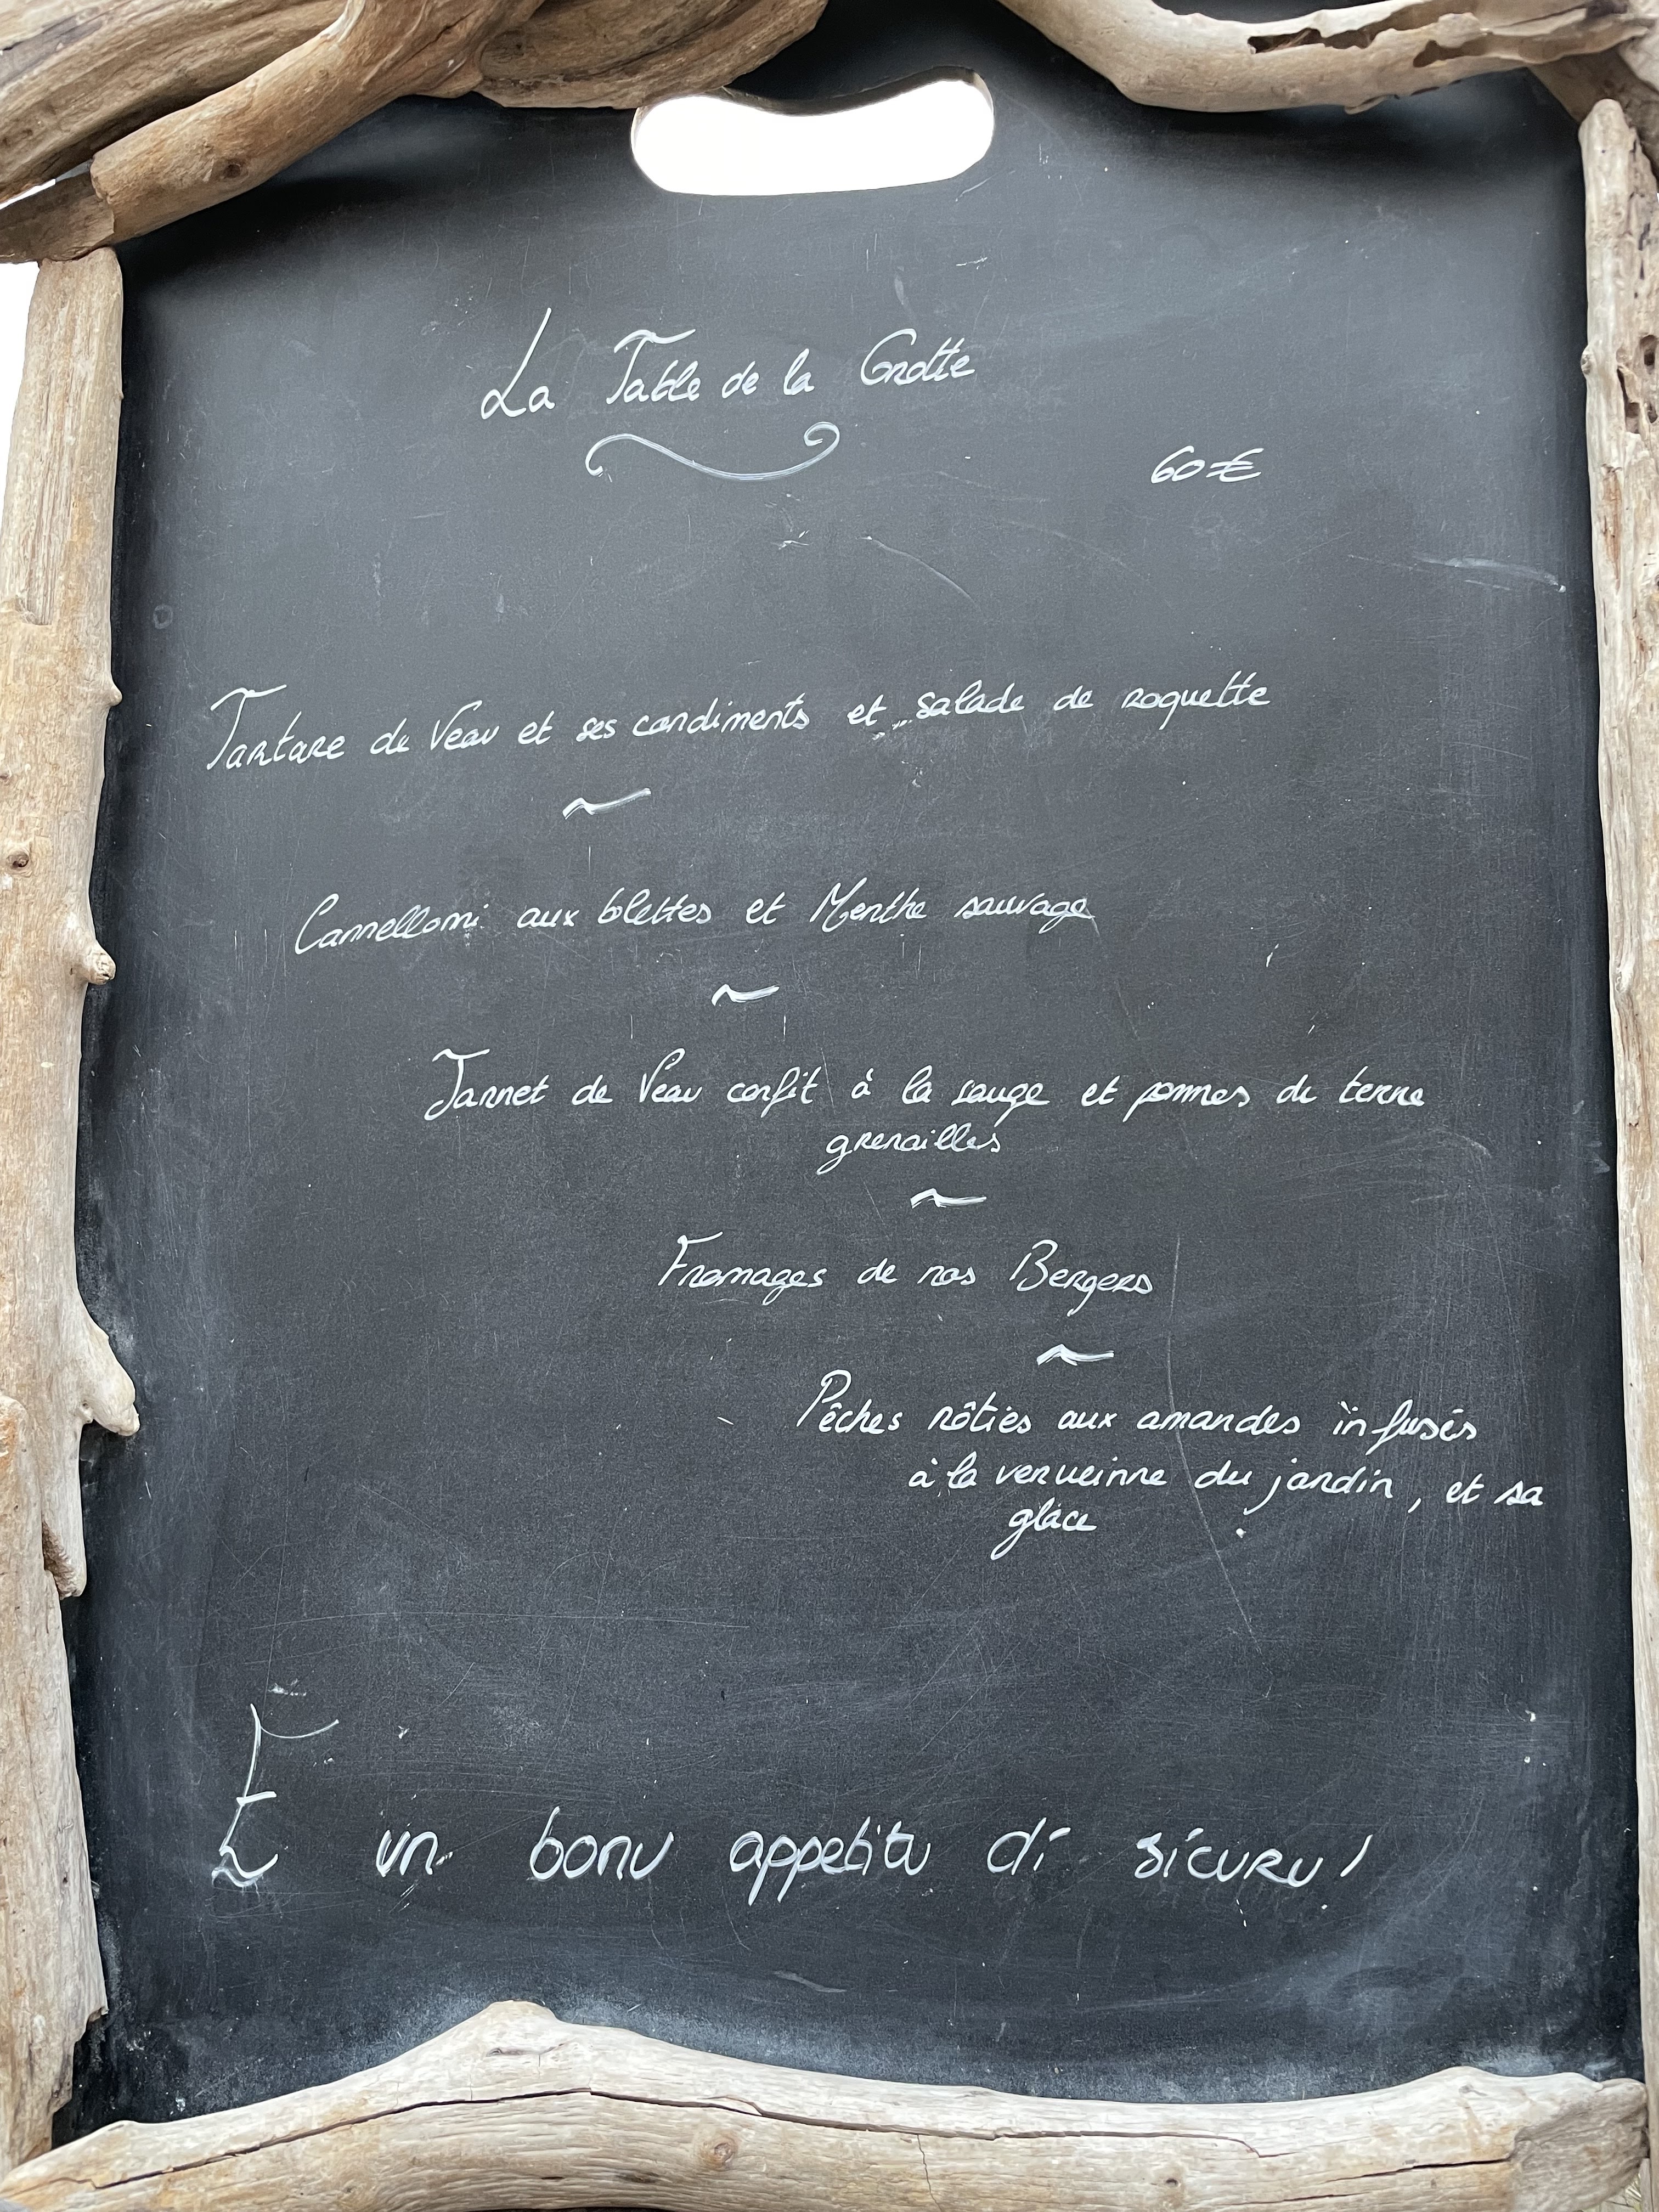 La Table de la Grotte
60€
Tartare de Veau et ses condiments et salade de roquette
~
Cannelloni aux blettes et Menthe sauvage
~
Jarret de Veau confit à la sauge et pommes de terre
grenailles
~
Fromages de nos Bergers
~
Pêches rôties aux amandes infusés
à la verveinne du jardin, et sa
glace
E un bonu appetitu di sicuru!